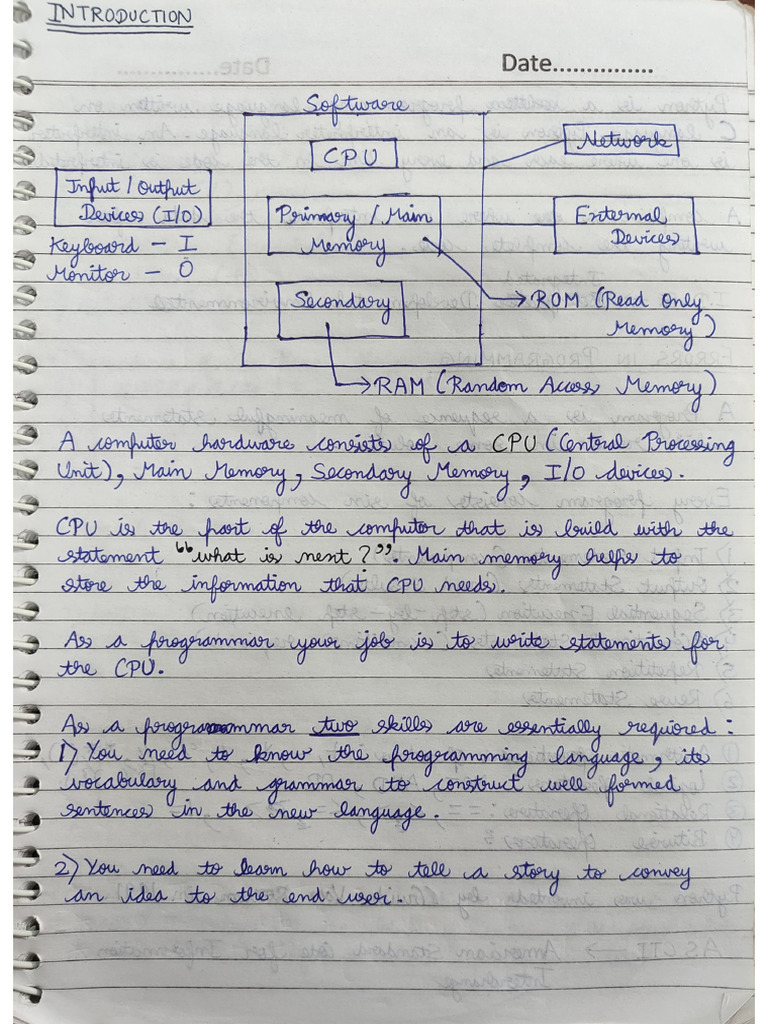 INTRODUCTION
Date...............
Software
CPU
Network
Input / Output
Devices (I/O)
Primary / Main
Memory
External
Devices
Keyboard - I
Monitor - O
Secondary
ROM (Read Only
Memory)
RAM (Random Access Memory)
A computer hardware consists of a CPU (Central Processing
Unit), Main Memory, Secondary Memory, I/O devices.
CPU is the part of the computer that is build with the
statement "what is next?". Main memory helps to
store the information that CPU needs.
As a programmar your job is to write statements for
the CPU.
As a programmar two skills are essentially required:
1) You need to know the programming language, its
vocabulary and grammar to construct well formed
sentences in the new language.
2) You need to learn how to tell a story to convey
an idea to the end user.